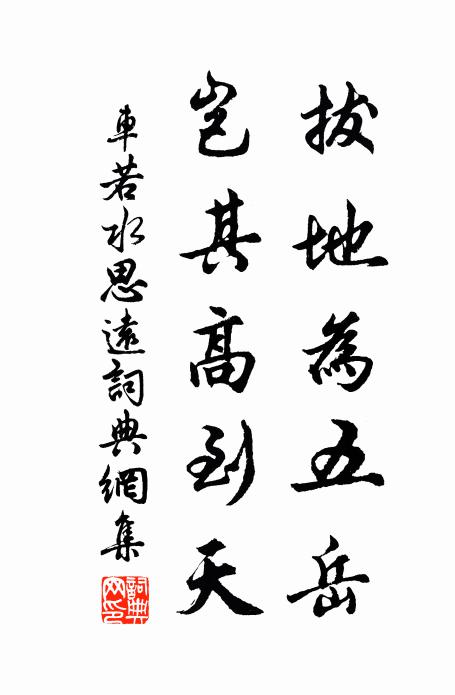 拔地為五岳
岂其高到天
車若水思遠詞典網集
詞典網印